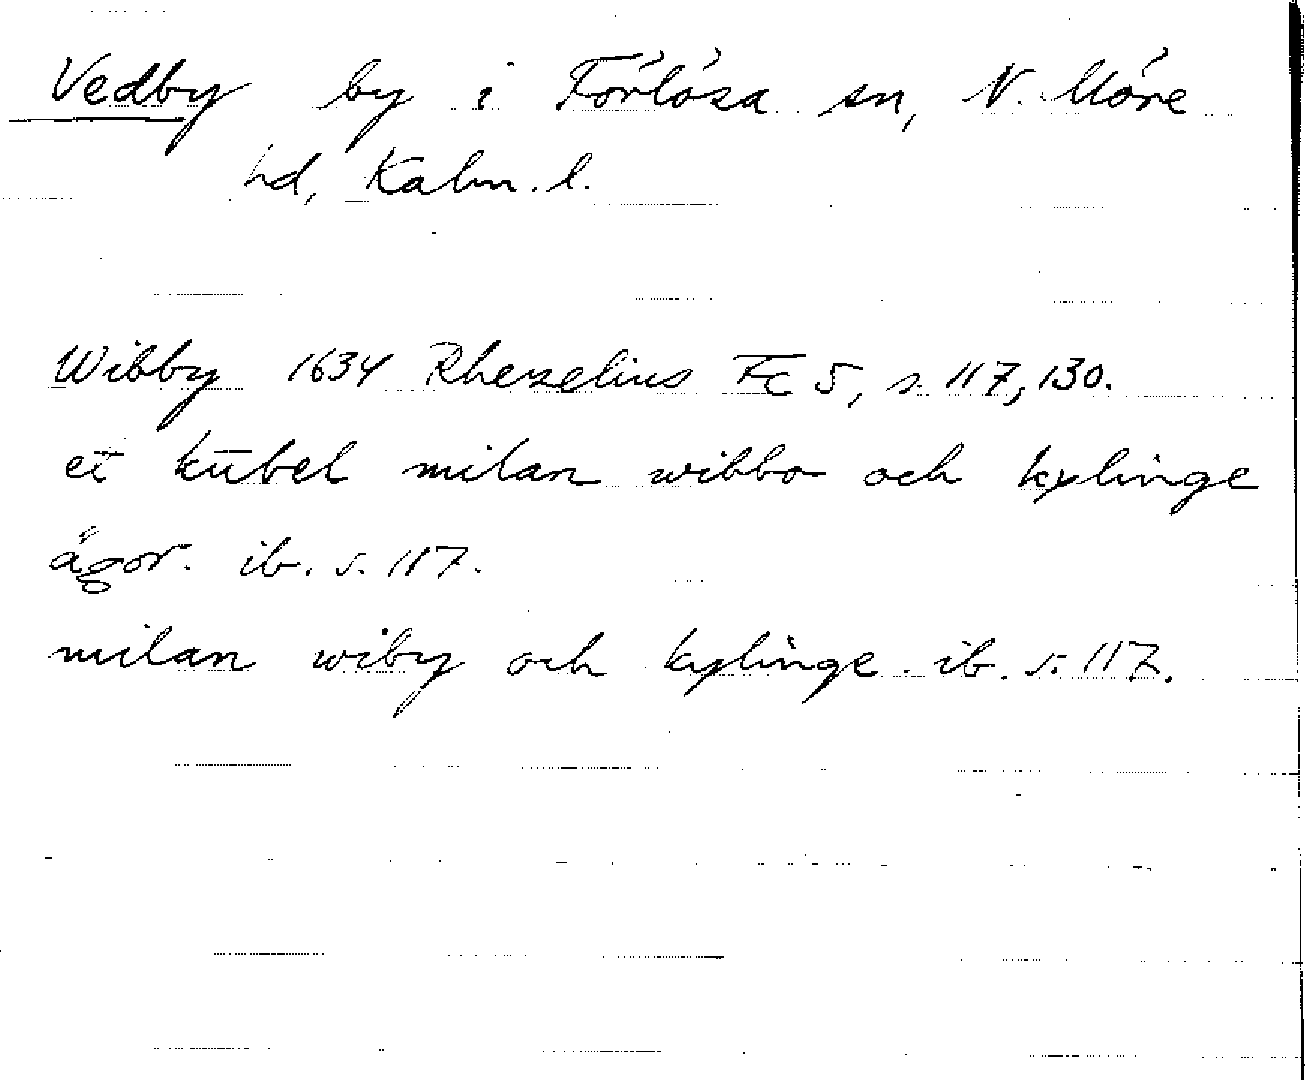 Vedby by i Förlösa sn, N. Möre
hd, Kalm. l.
Wibby 1634 Rhezelius Fc 5, s. 117, 130.
et kūbel milan wibbo och kylinge
ägor. ib. s. 117.
milan wiby och kylinge. ib. s. 117.